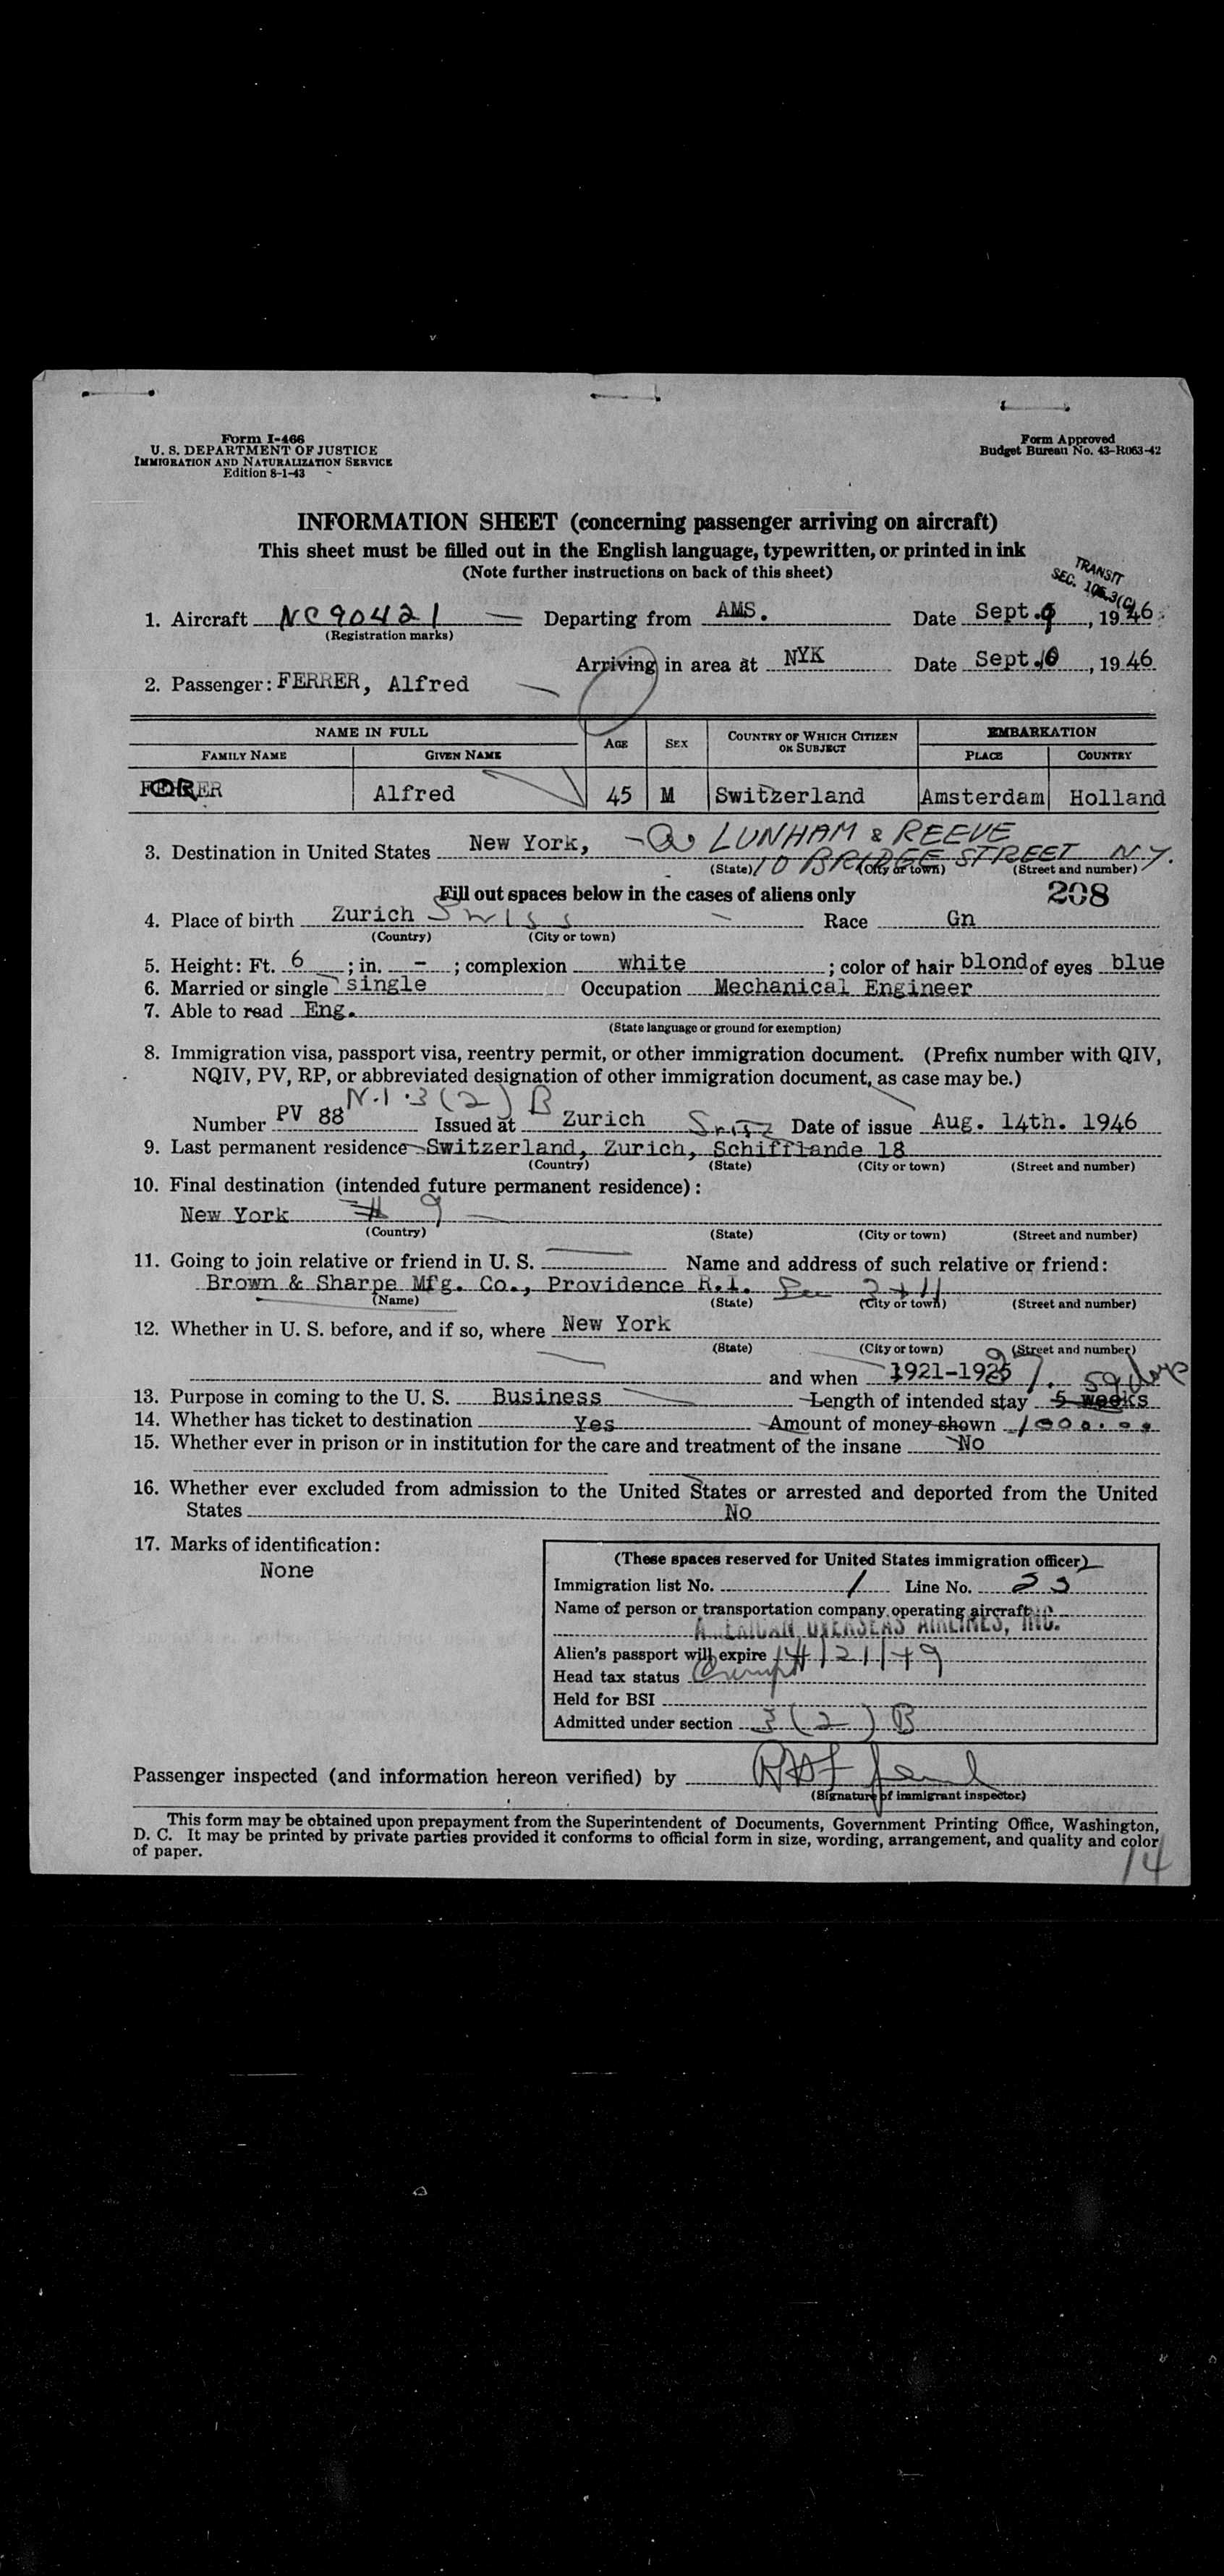 Form I-466
U. S. DEPARTMENT OF JUSTICE
IMMIGRATION AND NATURALIZATION SERVICE
Edition 8-1-43
Form Approved
Budget Bureau No. 43-R063-42
INFORMATION SHEET (concerning passenger arriving on aircraft)
This sheet must be filled out in the English language, typewritten, or printed in ink
(Note further instructions on back of this sheet)
TRANSIT
SEC. 106.3(C)
1. Aircraft NC90421 Departing from AMS. Date Sept. 9, 1946
(Registration marks)
Arriving in area at NYK Date Sept. 10, 1946
2. Passenger: FERRER, Alfred
NAME IN FULL AGE SEX COUNTRY OF WHICH CITIZEN OR SUBJECT EMBARKATION
FAMILY NAME GIVEN NAME PLACE COUNTRY
FORRER Alfred 45 M Switzerland Amsterdam Holland
3. Destination in United States New York, LUNHAM & REEVE
10 BRIDGE STREET N.Y.
(State) (City or town) (Street and number)
Fill out spaces below in the cases of aliens only 208
4. Place of birth Zurich Swiss Race Gn
(Country) (City or town)
5. Height: Ft. 6; in. -; complexion white; color of hair blond of eyes blue
6. Married or single single Occupation Mechanical Engineer
7. Able to read Eng.
(State language or ground for exemption)
8. Immigration visa, passport visa, reentry permit, or other immigration document. (Prefix number with QIV,
NQIV, PV, RP, or abbreviated designation of other immigration document, as case may be.)
N.I. 3(2) B
Number PV 88 Issued at Zurich Date of issue Aug. 14th. 1946
9. Last permanent residence Switzerland, Zurich, Schifflande 18
(Country) (State) (City or town) (Street and number)
10. Final destination (intended future permanent residence):
New York # 9
(Country) (State) (City or town) (Street and number)
11. Going to join relative or friend in U. S. Name and address of such relative or friend:
Brown & Sharpe Mfg. Co., Providence R.I.
(Name) (State) (City or town) (Street and number)
12. Whether in U. S. before, and if so, where New York
(State) (City or town) (Street and number)
and when 1921-1925
13. Purpose in coming to the U. S. Business Length of intended stay 5 weeks
14. Whether has ticket to destination Yes Amount of money shown 1000.00
15. Whether ever in prison or in institution for the care and treatment of the insane No
16. Whether ever excluded from admission to the United States or arrested and deported from the United
States No
17. Marks of identification:
None
(These spaces reserved for United States immigration officer)
Immigration list No. 1 Line No. 23
Name of person or transportation company operating aircraft
AMERICAN OVERSEAS AIRLINES, INC.
Alien's passport will expire
Head tax status Exempt
Held for BSI
Admitted under section 3(2) B
Passenger inspected (and information hereon verified) by
(Signature of immigrant inspector)
This form may be obtained upon prepayment from the Superintendent of Documents, Government Printing Office, Washington,
D. C. It may be printed by private parties provided it conforms to official form in size, wording, arrangement, and quality and color
of paper.
14